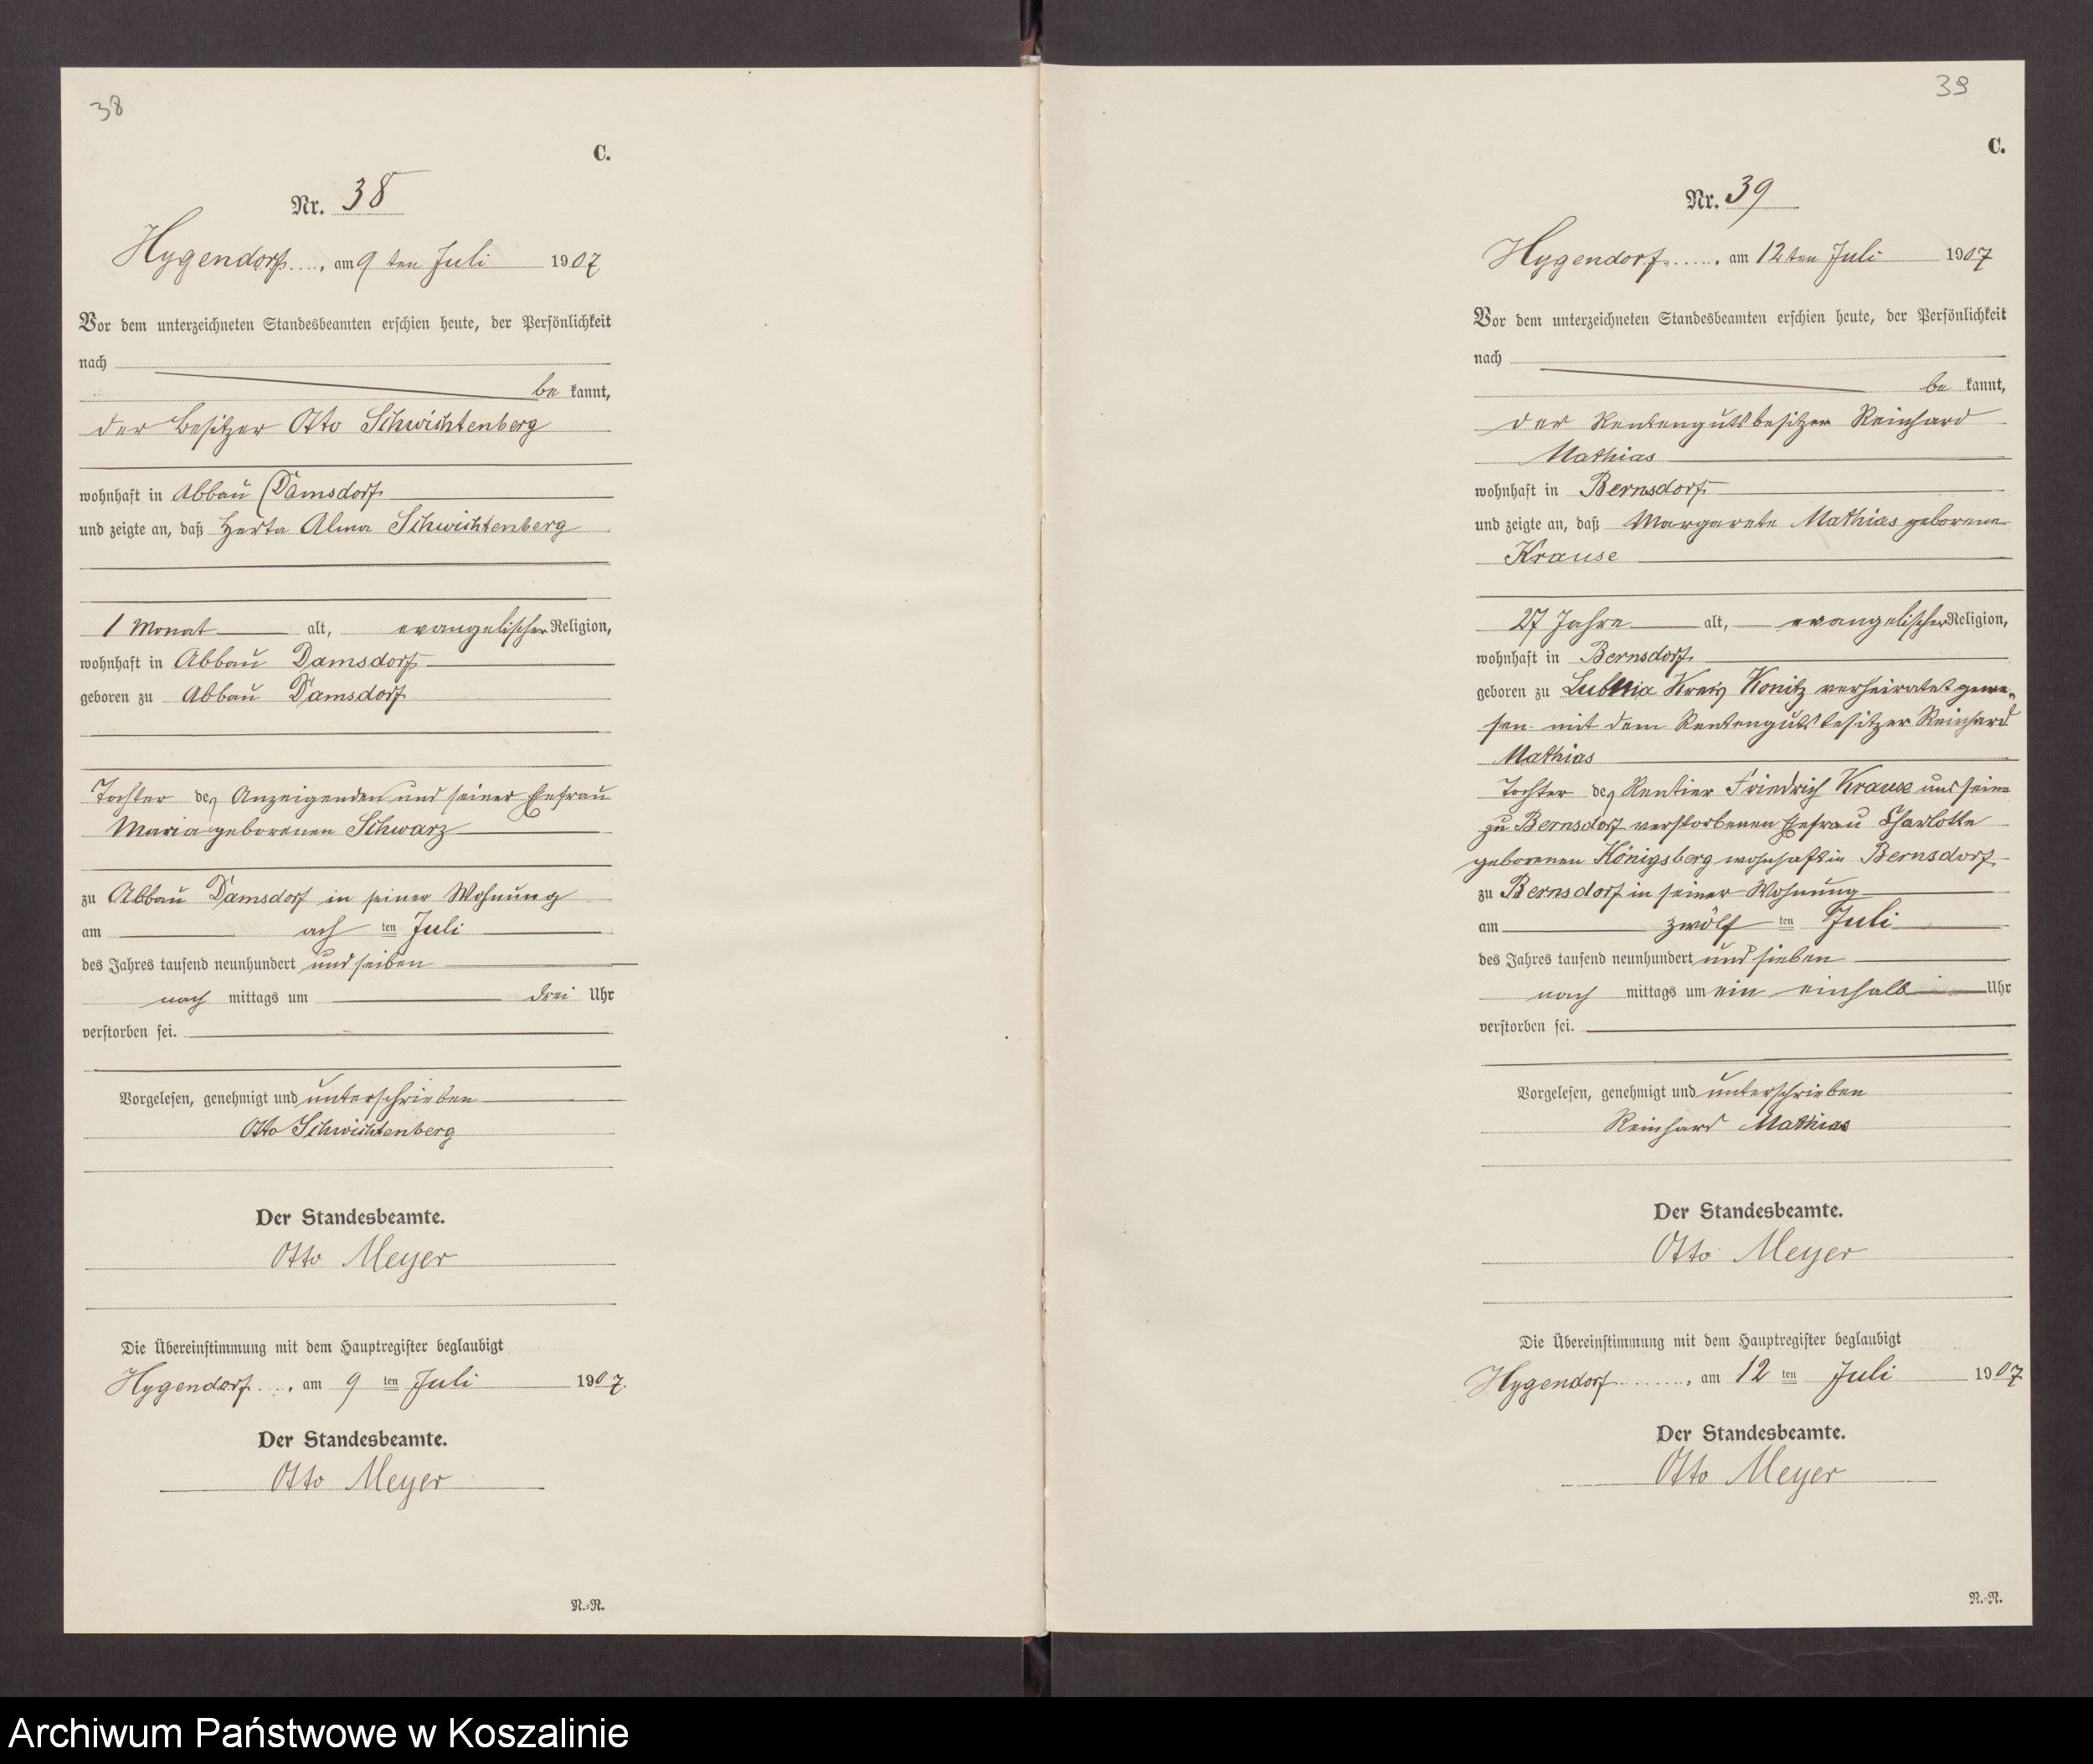 38
C.
Nr. 38
Hygendorf, am 9 ten Juli 1907
Vor dem unterzeichneten Standesbeamten erschien heute, der Persönlichkeit
nach
be kannt,
der Besitzer Otto Schwichtenberg
wohnhaft in Abbau Damsdorf
und zeigte an, daß Herta Alma Schwichtenberg
1 Monat alt, evangelischer Religion,
wohnhaft in Abbau Damsdorf
geboren zu Abbau Damsdorf
Tochter des Anzeigenden und seiner Ehefrau
Maria geborenen Schwarz
zu Abbau Damsdorf in seiner Wohnung
am ach ten Juli
des Jahres tausend neunhundert und seiben
nach mittags um drei Uhr
verstorben sei.
Vorgelesen, genehmigt und unterschrieben
Otto Schwichtenberg
Der Standesbeamte.
Otto Meyer
Die Übereinstimmung mit dem Hauptregister beglaubigt
Hygendorf, am 9 ten Juli 1907.
Der Standesbeamte.
Otto Meyer
N.-R.
39
C.
Nr. 39
Hygendorf, am 12 ten Juli 1907
Vor dem unterzeichneten Standesbeamten erschien heute, der Persönlichkeit
nach
be kannt,
der Rentengutsbesitzer Reinhard
Mathias
wohnhaft in Bernsdorf
und zeigte an, daß Margarete Mathias geborene
Krause
27 Jahre alt, evangelischer Religion,
wohnhaft in Bernsdorf
geboren zu Lubnia Kreis Konitz verheiratet gewe-
sen mit dem Rentengutsbesitzer Reinhard
Mathias
Tochter des Rentier Friedrich Krause und seine
zu Bernsdorf verstorbenen Ehefrau Charlotte
geborenen Königsberg wohnhaft in Bernsdorf
zu Bernsdorf in seiner Wohnung
am zwölf ten Juli
des Jahres tausend neunhundert und sieben
nach mittags um ein einhalb Uhr
verstorben sei.
Vorgelesen, genehmigt und unterschrieben
Reinhard Mathias
Der Standesbeamte.
Otto Meyer
Die Übereinstimmung mit dem Hauptregister beglaubigt
Hygendorf, am 12 ten Juli 1907
Der Standesbeamte.
Otto Meyer
N.-R.
Archiwum Państwowe w Koszalinie